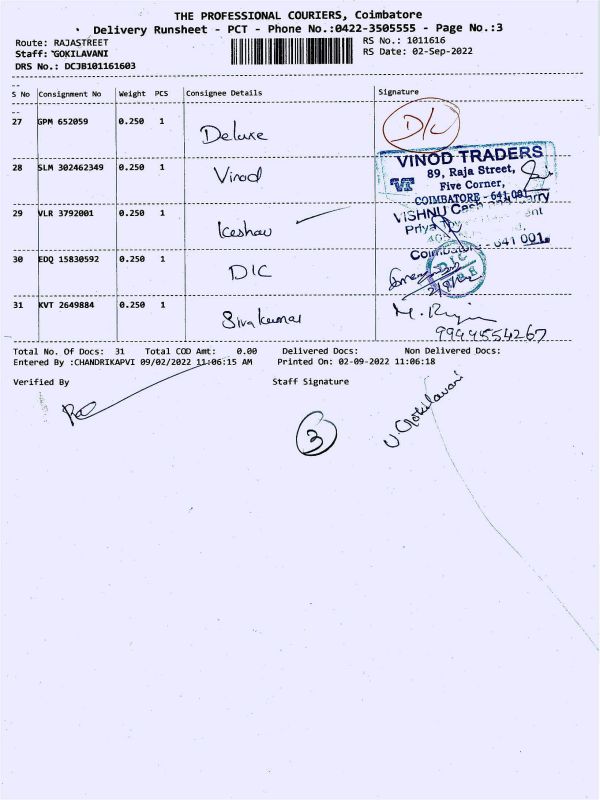 THE PROFESSIONAL COURIERS, Coimbatore
Delivery Runsheet - PCT - Phone No.:0422-3505555 - Page No.:3
Route: RAJASTREET RS No.: 1011616
Staff: GOKILAVANI RS Date: 02-Sep-2022
DRS No.: DCJB101161603
S No Consignment No Weight PCS Consignee Details Signature
27 GPM 652059 0.250 1 Deluxe D/L
28 SLM 302462349 0.250 1 Vinod
VINOD TRADERS
89, Raja Street,
Five Corner,
COIMBATORE - 641 001.
29 VLR 3792001 0.250 1 Keshav
VISHNU Cash and Carry
Priya
Coimbatore - 641 001.
30 EDQ 15830592 0.250 1 DIC
DIC
31 KVT 2649884 0.250 1 Sivakumar
9944554267
Total No. Of Docs: 31 Total COD Amt: 0.00 Delivered Docs: Non Delivered Docs:
Entered By :CHANDRIKAPVI 09/02/2022 11:06:15 AM Printed On: 02-09-2022 11:06:18
Verified By Staff Signature
3
U. Gokilavani